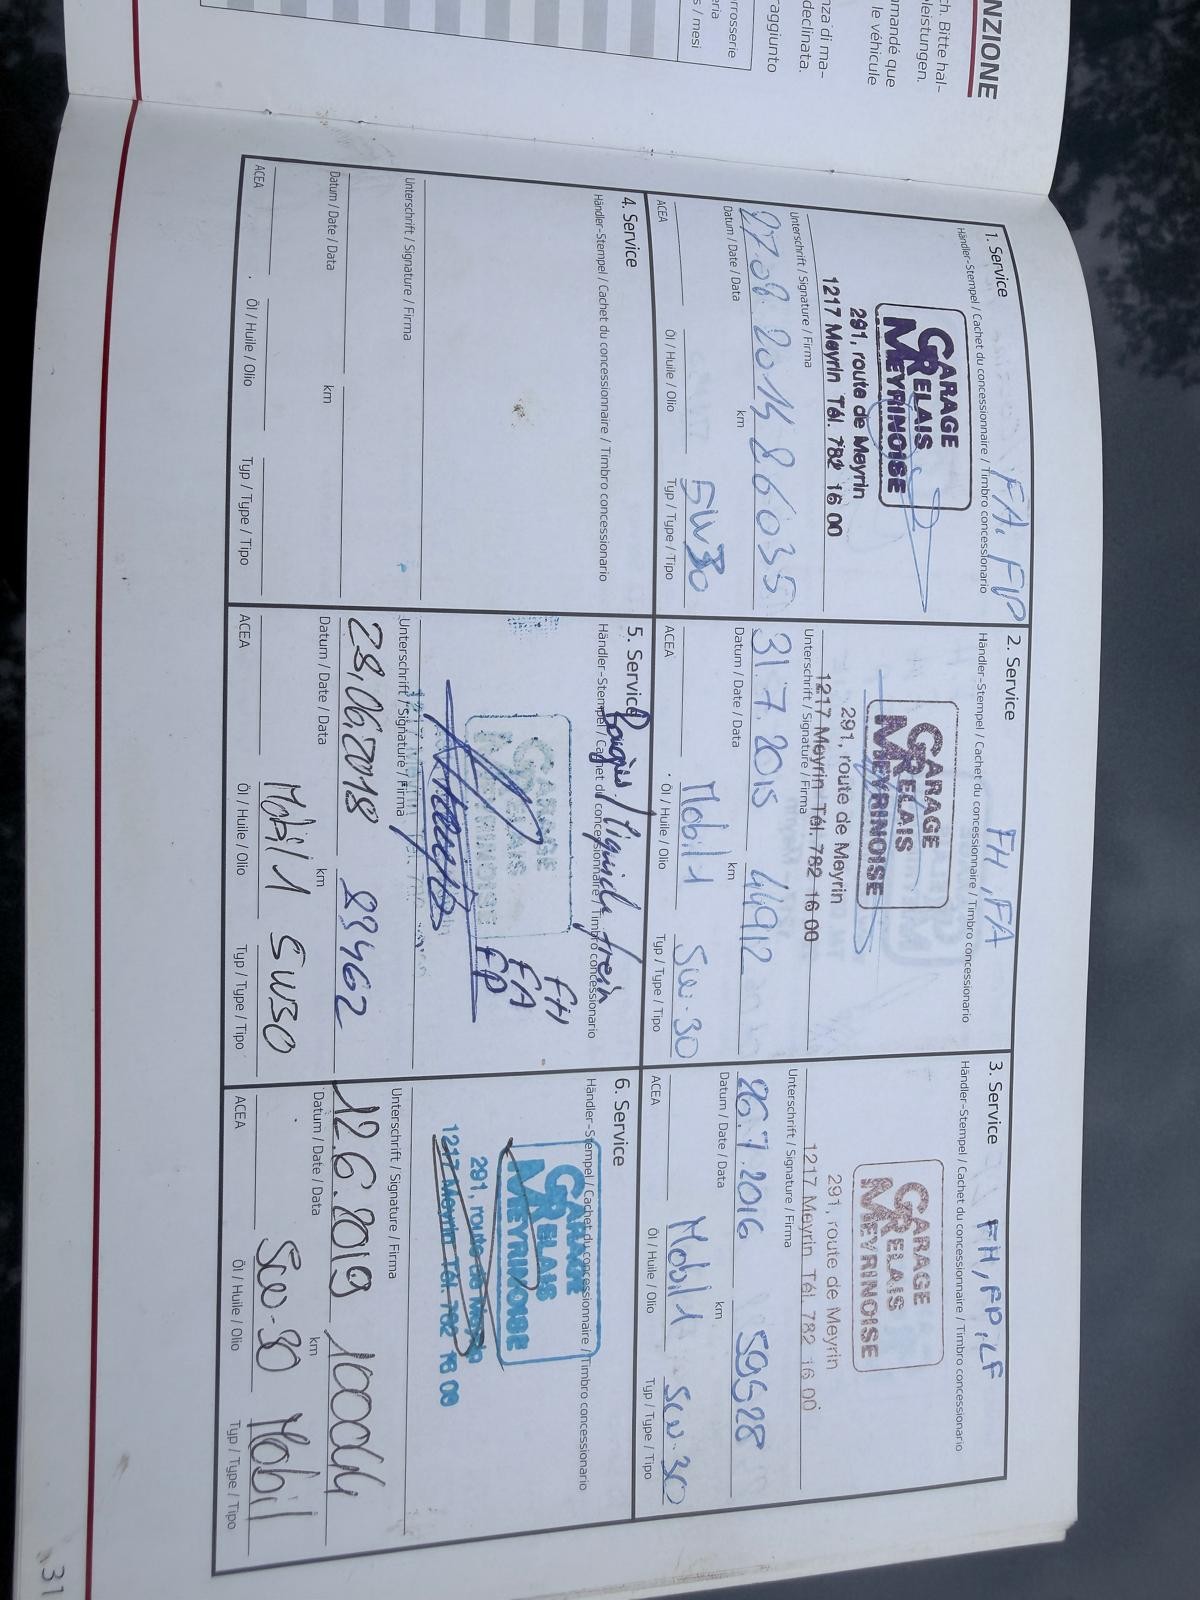 NZIONE
ch. Bitte hal-
leistungen.
mandé que
le véhicule
nza di ma-
declinata.
raggiunto
rrosserie
ria
s / mesi
1. Service
FA, FP
Händler-Stempel / Cachet du concessionnaire / Timbro concessionario
GARAGE
RELAIS
MEYRINOISE
291, route de Meyrin
1217 Meyrin Tél. 782 16 00
Unterschrift / Signature / Firma
27.08.2014 26035
Datum / Date / Data km
5W30
ACEA Öl / Huile / Olio Typ / Type / Tipo
2. Service
FH, FA
Händler-Stempel / Cachet du concessionnaire / Timbro concessionario
GARAGE
RELAIS
MEYRINOISE
291, route de Meyrin
1217 Meyrin Tél. 782 16 00
Unterschrift / Signature / Firma
31.7.2015 44912
Datum / Date / Data km
Mobil 1 5w-30
ACEA Öl / Huile / Olio Typ / Type / Tipo
3. Service
FH, FP, LF
Händler-Stempel / Cachet du concessionnaire / Timbro concessionario
GARAGE
RELAIS
MEYRINOISE
291, route de Meyrin
1217 Meyrin Tél. 782 16 00
Unterschrift / Signature / Firma
26.7.2016 59528
Datum / Date / Data km
Mobil 1 5w-30
ACEA Öl / Huile / Olio Typ / Type / Tipo
4. Service
Händler-Stempel / Cachet du concessionnaire / Timbro concessionario
Unterschrift / Signature / Firma
Datum / Date / Data km
ACEA Öl / Huile / Olio Typ / Type / Tipo
5. Service
Bougies / liquide frein
Händler-Stempel / Cachet du concessionnaire / Timbro concessionario
FH
FA
FP
GARAGE
RELAIS
MEYRINOISE
Unterschrift / Signature / Firma
28.06.2018 83462
Datum / Date / Data km
Mobil 1 5W30
ACEA Öl / Huile / Olio Typ / Type / Tipo
6. Service
Händler-Stempel / Cachet du concessionnaire / Timbro concessionario
GARAGE
RELAIS
MEYRINOISE
291, route de Meyrin
1217 Meyrin Tél. 782 16 00
Unterschrift / Signature / Firma
12.6.2019 100044
Datum / Date / Data km
5w-30 Mobil
ACEA Öl / Huile / Olio Typ / Type / Tipo
31